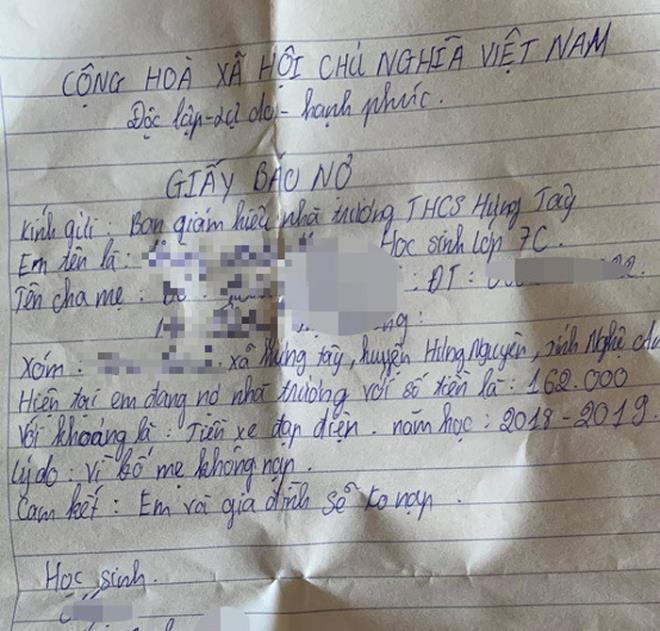 CỘNG HOÀ XÃ HỘI CHỦ NGHĨA VIỆT NAM
Độc lập - tự do - hạnh phúc.
GIẤY BÁO NỢ
Kính gửi: Ban giám hiệu nhà trường THCS Hưng Tây
Em tên là: Học sinh lớp 7C.
Tên cha mẹ: ĐT:
Xóm: xã Hưng tây, huyện Hưng Nguyên, tỉnh Nghệ
Hiện tại em đang nợ nhà trường với số tiền là: 162.000
Với khoảng là: Tiền xe đạp điện. năm học: 2018-2019.
Lý do: vì bố mẹ không nạp.
Cam kết: Em và gia đình sẽ ko nạp.
Học sinh.